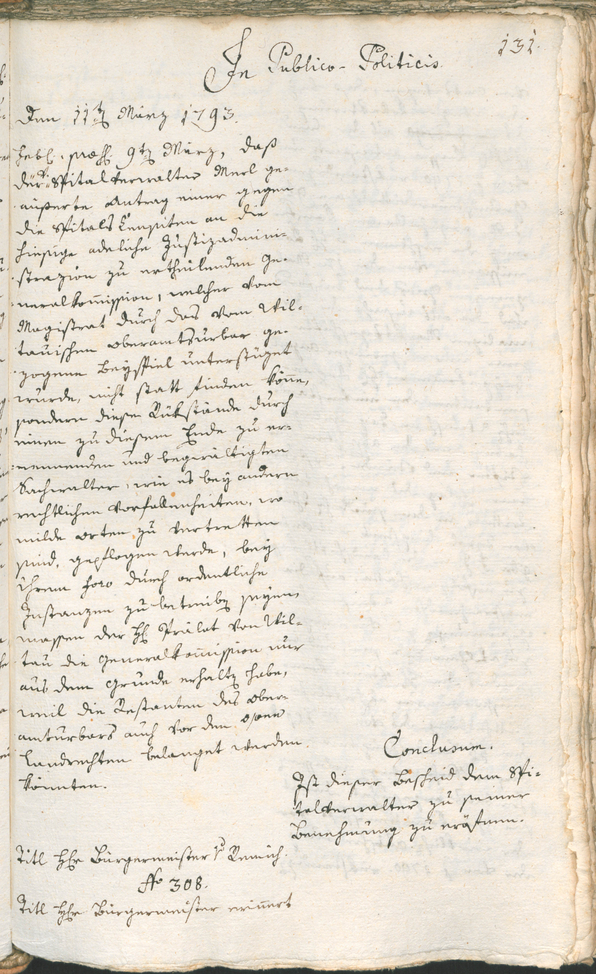 131.
In Publico-Politicis.
Den 11ten März 1793.
9ten März, daß
der Spitalverwalter Merl ge-
äußerte Antrag einer gegen
die Spitals Censiten an die
hiesige adeliche Justizadmini-
strazion zu ertheilenden Ge-
neralkom̄ission, welcher vom
Magistrat durch das vom Wil-
tauischen Oberamtsurbar ge-
zogene Beyspiel unterstüzet
wurde, nicht statt finden könne,
sondern diese Rükstände durch
einen zu diesem Ende zu er-
nennenden und begwältigten
Sachwalter, wie es bey andern
rechtlichen Vorfallenheiten, wo
milde Orten zu vertretten
sind, gepflogen werde, bey
ihrem foro durch ordentliche
Instanzen zu betreiben seyen,
massen der H: Prälat von Wil-
tau die Generalkom̄ission nur
aus dem Grunde erhalten habe,
weil die Restanten des Ober-
amturbars auch vor den
Landrechten belanget werden
könnten.
Conclusum.
Ist dieser Bescheid dem Spi-
talverwalter zu seiner
Benehmung zu eröfnen.
Titl Hr Bürgermeister
No 308.
Titl Hr Bürgermeister erinnert